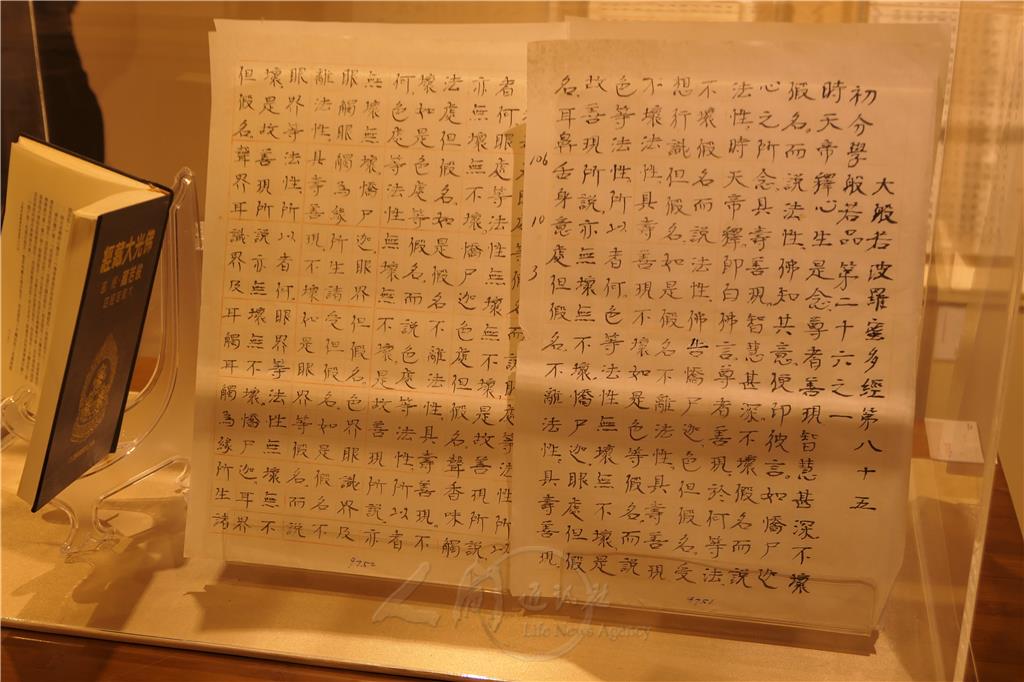 大般若波羅蜜多經第八十五
初分學般若品第二十六之一
時天帝釋心生是念尊者善現智慧甚深不壞
假名而說法性佛知其意便印彼言如憍尸迦
心之所念具壽善現智慧甚深不壞假名而說
法性時天帝釋即白佛言尊者善現於何等法
不壞假名而說法性佛告憍尸迦色但假名受
想行識但假名如是假名不離法性具壽善現
不壞法性具壽善現不壞如是色等假名而說
色等法性所以者何色等法性無壞無不壞是
故善現所說亦無壞無不壞憍尸迦眼處但假
名耳鼻舌身意處但假名不離法性具壽善現
106
10
3
9751
等假名而說眼處等法性所以
者何眼處等法性無壞無不壞是故善現所說
亦無壞無不壞憍尸迦色處但假名聲香味觸
法處但假名如是假名不離法性具壽善現不
壞如是色處等假名而說色處等法性所以者
何色處等法性無壞無不壞是故善現所說亦
無壞無不壞憍尸迦眼界但假名色界眼識界及
眼觸眼觸為緣所生諸受但假名如是假名不
離法性具壽善現不壞如是眼界等假名而說
眼界等法性所以者何眼界等法性無壞無不
壞是故善現所說亦無壞無不壞憍尸迦耳界
但假名聲界耳識界及耳觸耳觸為緣所生諸
9752
佛光大藏經
般若藏
人間通訊社
Life News Agency